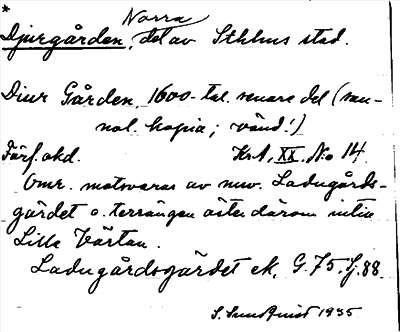 *
Norra
Djurgården, del av Sthlms stad.
Diur Gården, 1600-tal. senare del (san-
nol. kopia; vänd!)
Förf. okd. KrA, XX. No 14.
Omr. motsvaras av nuv. Ladugårds-
gärdet o. terrängen öster därom intill
Lilla Värtan.
Ladugårdsgärdet ek. G. 75. Ij. 88.
S. Sundquist 1935